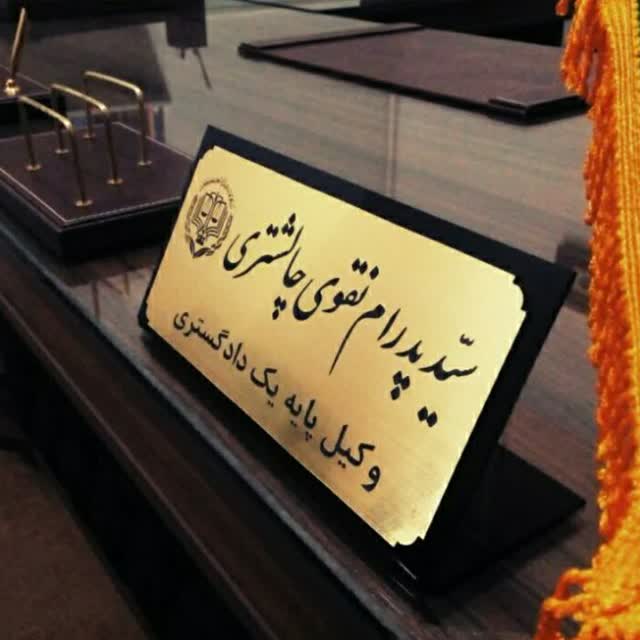 سیّد پدرام نقوی چالشتری
وکیل پایه یک دادگستری